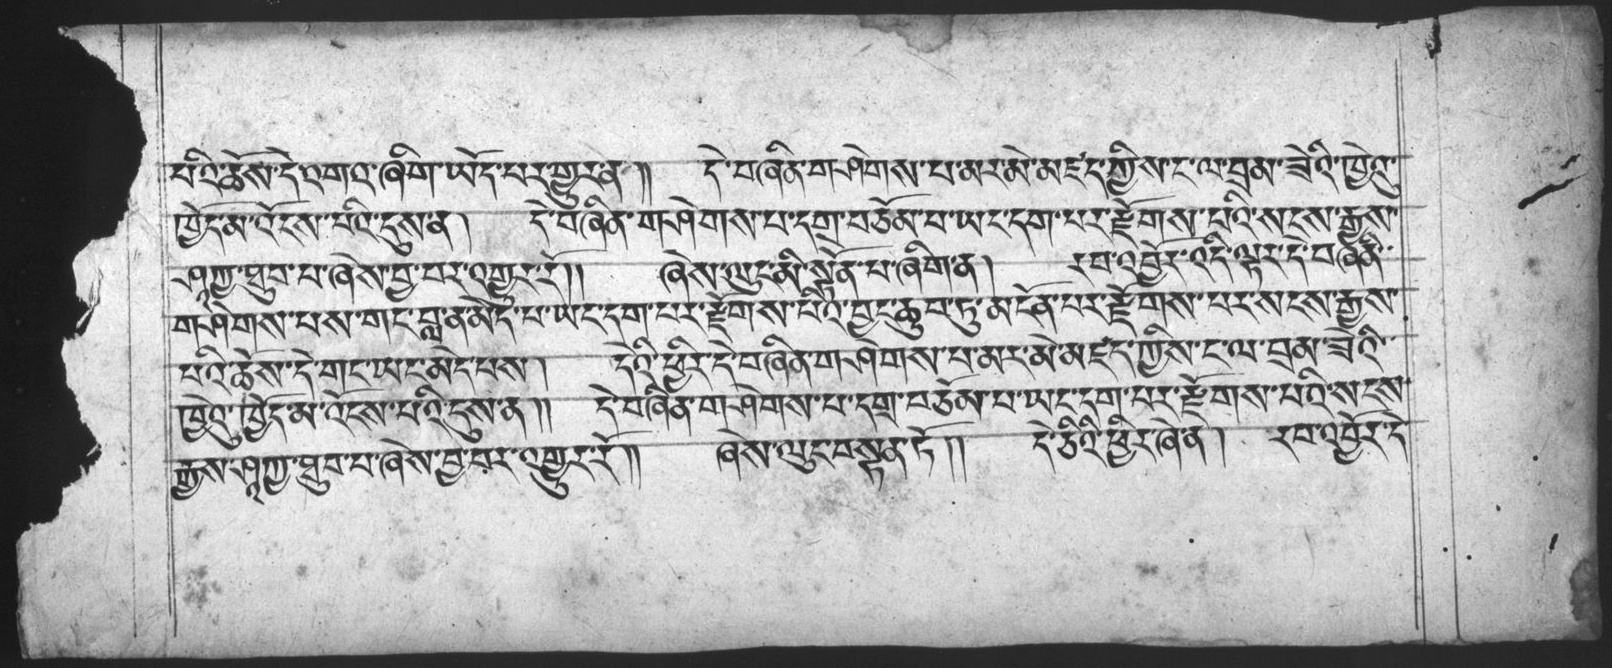 པའི་ཆོས་དེ་འགའ་ཞིག་ཡོད་པར་གྱུར་ན༎ དེ་བཞིན་གཤེགས་པ་མར་མེ་མཛད་ཀྱིས་ང་ལ་བྲམ་ཟེའི་ཁྱེའུ་
ཁྱོད་མ་འོངས་པའི་དུས་ན། དེ་བཞིན་གཤེགས་པ་དགྲ་བཅོམ་པ་ཡང་དག་པར་རྫོགས་པའི་སངས་རྒྱས་
ཤཱཀྱ་ཐུབ་པ་ཞེས་བྱ་བར་འགྱུར་རོ༎ ཞེས་ལུང་མི་སྟོན་པ་ཞིག་ན། རབ་འབྱོར་འདི་ལྟར་དེ་བཞིན་
གཤེགས་པས་གང་བླ་ན་མེད་པ་ཡང་དག་པར་རྫོགས་པའི་བྱང་ཆུབ་ཏུ་མངོན་པར་རྫོགས་པར་སངས་རྒྱས་
པའི་ཆོས་དེ་གང་ཡང་མེད་པས། དེའི་ཕྱིར་དེ་བཞིན་གཤེགས་པ་མར་མེ་མཛད་ཀྱིས་ང་ལ་བྲམ་ཟེའི་
ཁྱེའུ་ཁྱོད་མ་འོངས་པའི་དུས་ན༎ དེ་བཞིན་གཤེགས་པ་དགྲ་བཅོམ་པ་ཡང་དག་པར་རྫོགས་པའི་སངས་
རྒྱས་ཤཱཀྱ་ཐུབ་པ་ཞེས་བྱ་བར་འགྱུར་རོ༎ ཞེས་ལུང་བསྟན་ཏོ༎ དེ་ཅིའི་ཕྱིར་ཞེ་ན། རབ་འབྱོར་དེ་